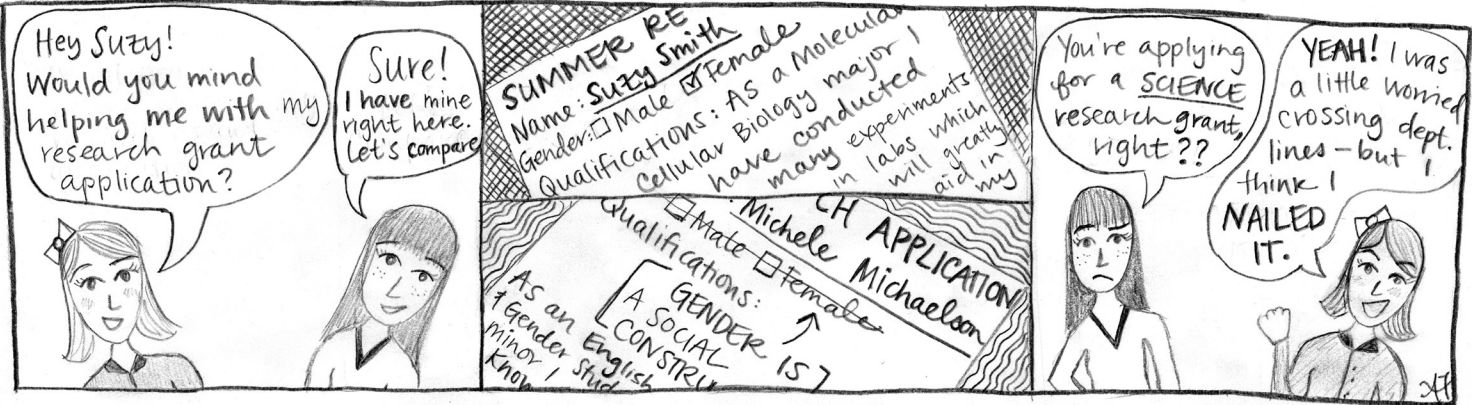 Hey Suzy!
Would you mind
helping me with my
research grant
application?
Sure!
I have mine
right here.
Let's compare
SUMMER RE
Name: Suzy Smith
Gender: Male Female
Qualifications: As a Molecular
Cellular Biology major I
have conducted
many experiments
in labs which
will greatly
aid in
my
CH APPLICATION
: Michele Michaelson
Male Female
Qualifications:
[GENDER IS]
A SOCIAL
CONSTRU
As an English
& Gender Stud
minor I
Know
You're applying
for a SCIENCE
research grant,
right??
YEAH! I was
a little worried
crossing dept.
lines - but I
think I
NAILED
IT.